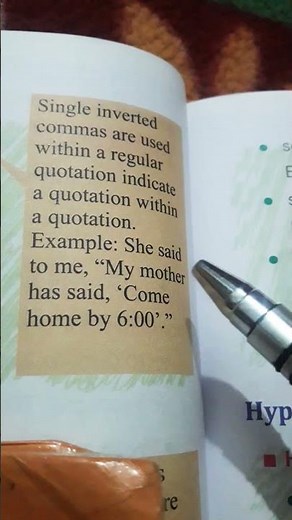 Single inverted
commas are used
within a regular
quotation indicate
a quotation within
a quotation.
Example: She said
to me, “My mother
has said, ‘Come
home by 6:00’.”
Hyp